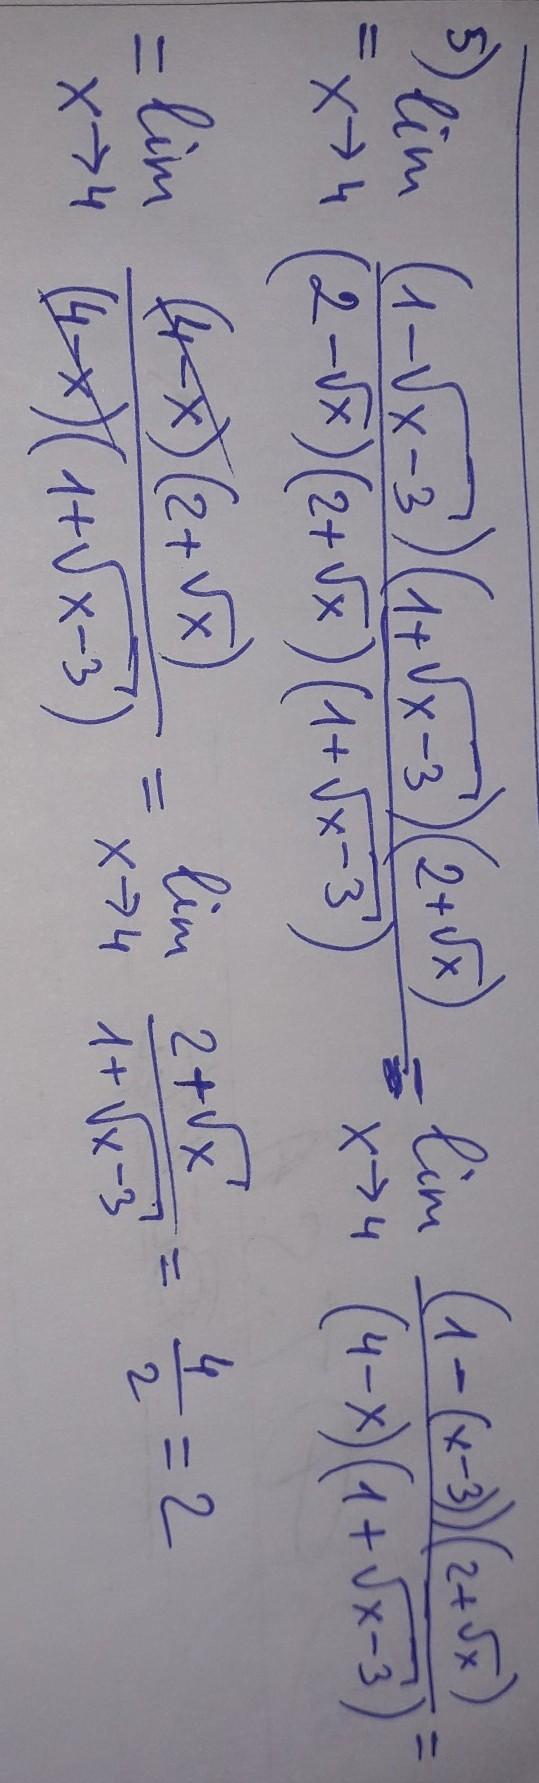 5) = lim x→4 (1-√(x-3))(1+√(x-3))(2+√x) / (2-√x)(2+√x)(1+√(x-3)) = lim x→4 (1-(x-3))(2+√x) / (4-x)(1+√(x-3)) =
= lim x→4 (4-x)(2+√x) / (4-x)(1+√(x-3)) = lim x→4 2+√x / 1+√(x-3) = 4/2 = 2